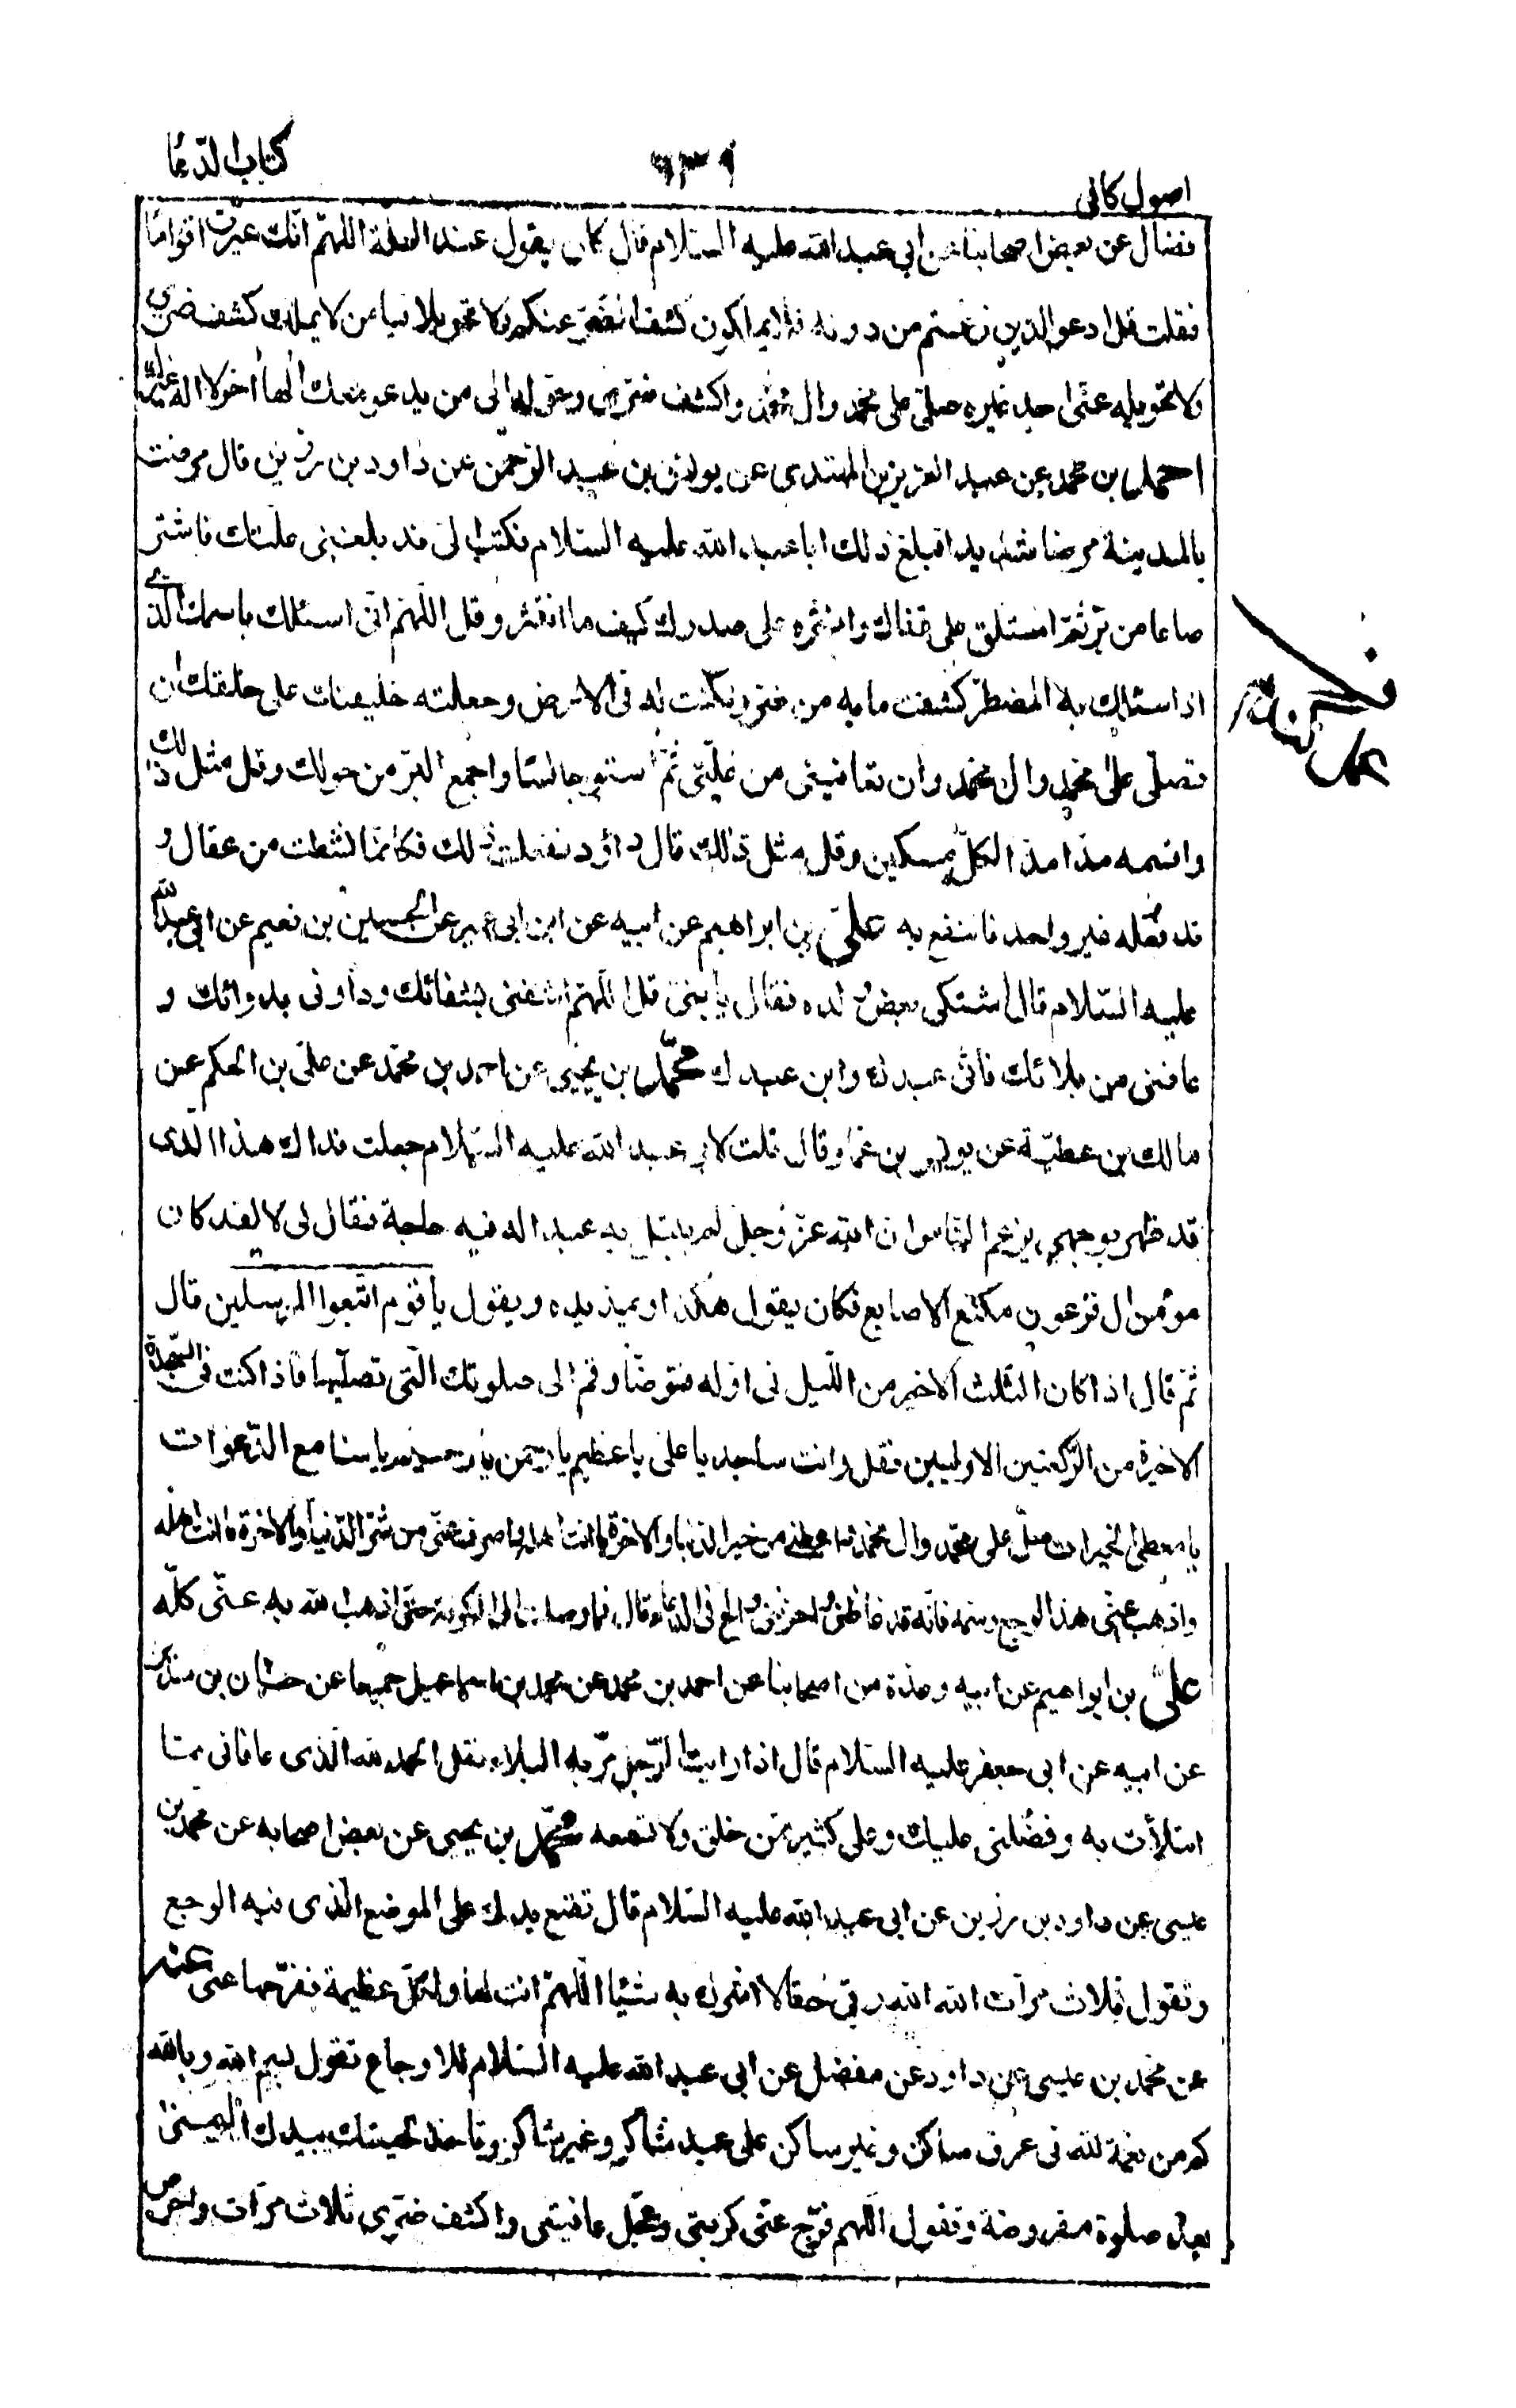 اصول كافى ٦٣٩ كتاب الدّعا
فضال عن بعض اصحابنا عن ابى عبد الله عليه السّلام قال كان يقول عند العلة اللّهمّ انّك عيّرت اقواما
فقلت قل ادعوا الذين زعمتم من دونه فلا يملكون كشف الضّرّ عنكم ولا تحويلا فيا من لا يملك كشف ضرى
ولا تحويله عنّى احد غيره صلّ على محمد وال محمّد واكشف ضرى وحوله الى من يدعو معك الها اخر لا اله غيرك
احمد بن محمد عن عبد العزيز بن المهتدى عن يونس بن عبد الرّحمن عن داود بن رزين قال مرضت
بالمدينة مرضا شديدا فبلغ ذلك ابا عبد الله عليه السّلام فكتب الى قد بلغنى علّتك فاشتر
صاعا من برّ ثمّ استلق على قفاك وانثره على صدرك كيف ما انتثر وقل اللّهمّ انّى اسئلك باسمك الّذى
اذا سئلك به المضطرّ كشفت ما به من ضرّ ومكّنت له فى الارض وجعلته خليفتك على خلقك ان
تصلّى على محمّد وال محمّد وان تعافينى من علّتى ثمّ استو جالسا واجمع البرّ من حولك وقل مثل ذلك
واقسمه مدا مدا لكلّ مسكين وقل مثل ذلك قال داؤد ففعلت ذلك فكانّما نشطت من عقال و
قد فعله غير واحد فانتفع به علىّ بن ابراهيم عن ابيه عن ابن ابى عمير عن الحسين بن نعيم عن ابى عبد الله
عليه السّلام قال اشتكى بعض ولده فقال يا بنىّ قل اللّهمّ اشفنى بشفائك وداونى بدوائك و
عافنى من بلائك فانّى عبدك وابن عبدك محمّد بن يحيى عن احمد بن محمّد عن علىّ بن الحكم عن
مالك بن عطيّة عن يونس بن عمار قال قلت لابى عبد الله عليه السّلام جعلت فداك هذا الّذى
قد ظهر بوجهى يزعم النّاس ان الله عزّ وجلّ لم يبتل به عبدا له فيه حاجة فقال لى لا لقد كان
مؤمن ال فرعون مكنّع الاصابع فكان يقول هكذا ويمدّ يده ويقول يا قوم اتّبعوا المرسلين قال
ثمّ قال اذا كان الثلث الاخير من اللّيل فى اوّله فتوضّأ وقم الى صلوتك الّتى تصلّيها فاذا كنت فى السّجدة
الاخيرة من الرّكعتين الاوليين فقل وانت ساجد يا علىّ يا عظيم يا رحمن يا رحيم يا سامع الدّعوات
يا معطى الخيرات صلّ على محمّد وال محمّد واعطنى من خير الدّنيا والاخرة ما انت اهله واصرف عنّى من شرّ الدّنيا والاخرة ما انت اهله
واذهب عنّى هذا الوجع وسمه فانّه قد غاظنى واحزننى والحّ فى الدّعاء قال فما وصلت الى الكوفة حتّى اذهب الله به عنّى كلّه
علىّ بن ابراهيم عن ابيه وعدّة من اصحابنا عن احمد بن محمد عن محمد بن اسماعيل جميعا عن حنان بن سدير
عن ابيه عن ابى جعفر عليه السّلام قال اذا رايت الرّجل مرّ به البلاء فقل الحمد لله الّذى عافانى ممّا
ابتلاك به وفضّلنى عليك وعلى كثير ممّن خلق ولا تسمعه محمّد بن يحيى عن بعض اصحابه عن محمّد بن
عيسى عن داود بن رزين عن ابى عبد الله عليه السّلام قال تضع يدك على الموضع الّذى فيه الوجع
وتقول ثلاث مرّات الله الله ربّى حقّا لا اشرك به شيئا اللّهمّ انت لها ولكلّ عظيمة ففرّجها عنّى عنه
عن محمّد بن عيسى عن داود عن مفضل عن ابى عبد الله عليه السّلام للاوجاع تقول بسم الله وبالله
كم من نعمة لله فى عرق ساكن وغير ساكن على عبد شاكر وغير شاكر وتاخذ لحيتك بيدك اليمنى
بعد صلوة مفروضة وتقول اللّهمّ فرّج عنّى كربتى وعجّل عافيتى واكشف ضرّى ثلاث مرّات واحرص